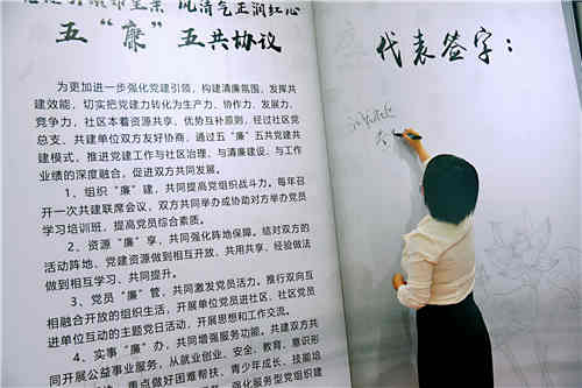 风清气正润红心
五“廉”五共协议
为更加进一步强化党建引领，构建清廉氛围，发挥共
建效能，切实把党建力转化为生产力、协作力、发展力、
竞争力，社区本着资源共享，优势互补原则，经过社区党
总支、共建单位双方友好协商，通过五“廉”五共党建共
建模式，推进党建工作与社区治理、与清廉建设、与工作
业绩的深度融合，促进双方共同发展。
1、组织“廉”建，共同提高党组织战斗力。每年召
开一次共建联席会议，双方共同举办或协助对方举办党员
学习培训班，提高党员综合素质。
2、资源“廉”享，共同强化阵地保障。结对双方的
活动阵地、党建资源做到相互开放、共用共享，经验做法
做到相互学习、共同提升。
3、党员“廉”管，共同激发党员活力。推行双向互
相融合开放的组织生活，开展单位党员进社区，社区党员
进单位互动的主题党日活动，开展思想和工作交流。
4、实事“廉”办，共同增强服务功能。共建双方共
同开展公益事业服务，从就业创业、安全、教育、意识形
重点做好困难帮扶、青少年成长、技能培
强化服务型党组织建
代表签字：